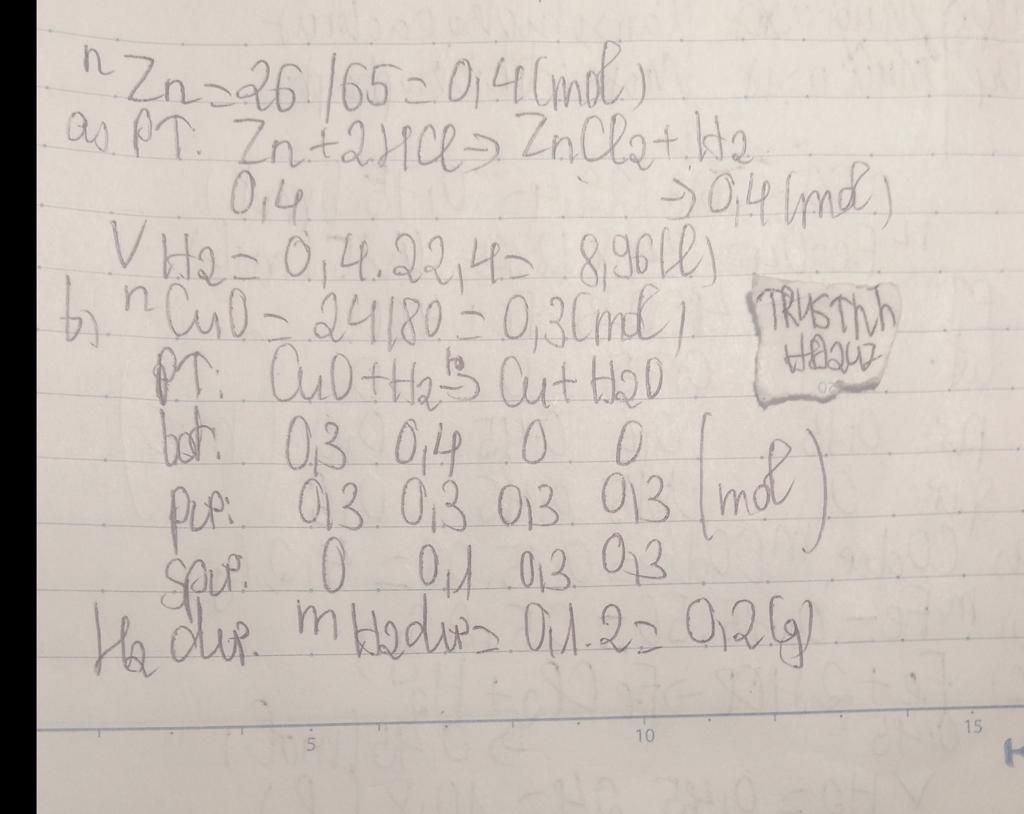 nZn=26/65=0,4(mol)
a, PT: Zn+2HCl→ZnCl2+H2
0,4 →0,4(mol)
VH2=0,4.22,4=8,96(l)
b, nCuO=24/80=0,3(mol)
PT: CuO+H2 t°→ Cu+H2O
bđ: 0,3 0,4 0 0
pư: 0,3 0,3 0,3 0,3 (mol)
spư: 0 0,1 0,3 0,3
H2 dư. mH2dư=0,1.2=0,2(g)
5 10 15